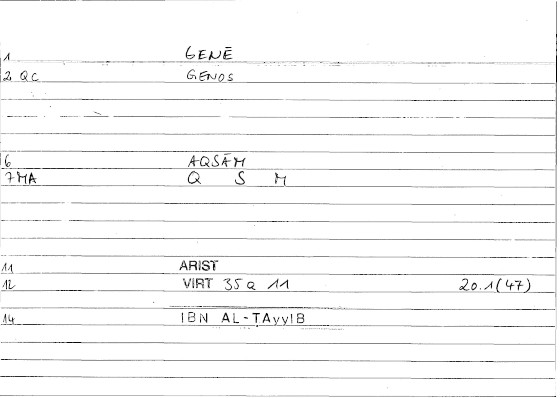 1 GENĒ
2 QC GENOS
6 AQSĀM
7 MA Q S M
11 ARIST
12 VIRT 35 a 11 20.1(47)
14 IBN AL-TAyyIB